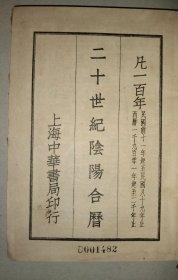 凡一百年
民國前十一年起至民國八十九年止
西曆一千九百零一年起至二千年止
二十世紀陰陽合曆
上海中華書局印行
0001482